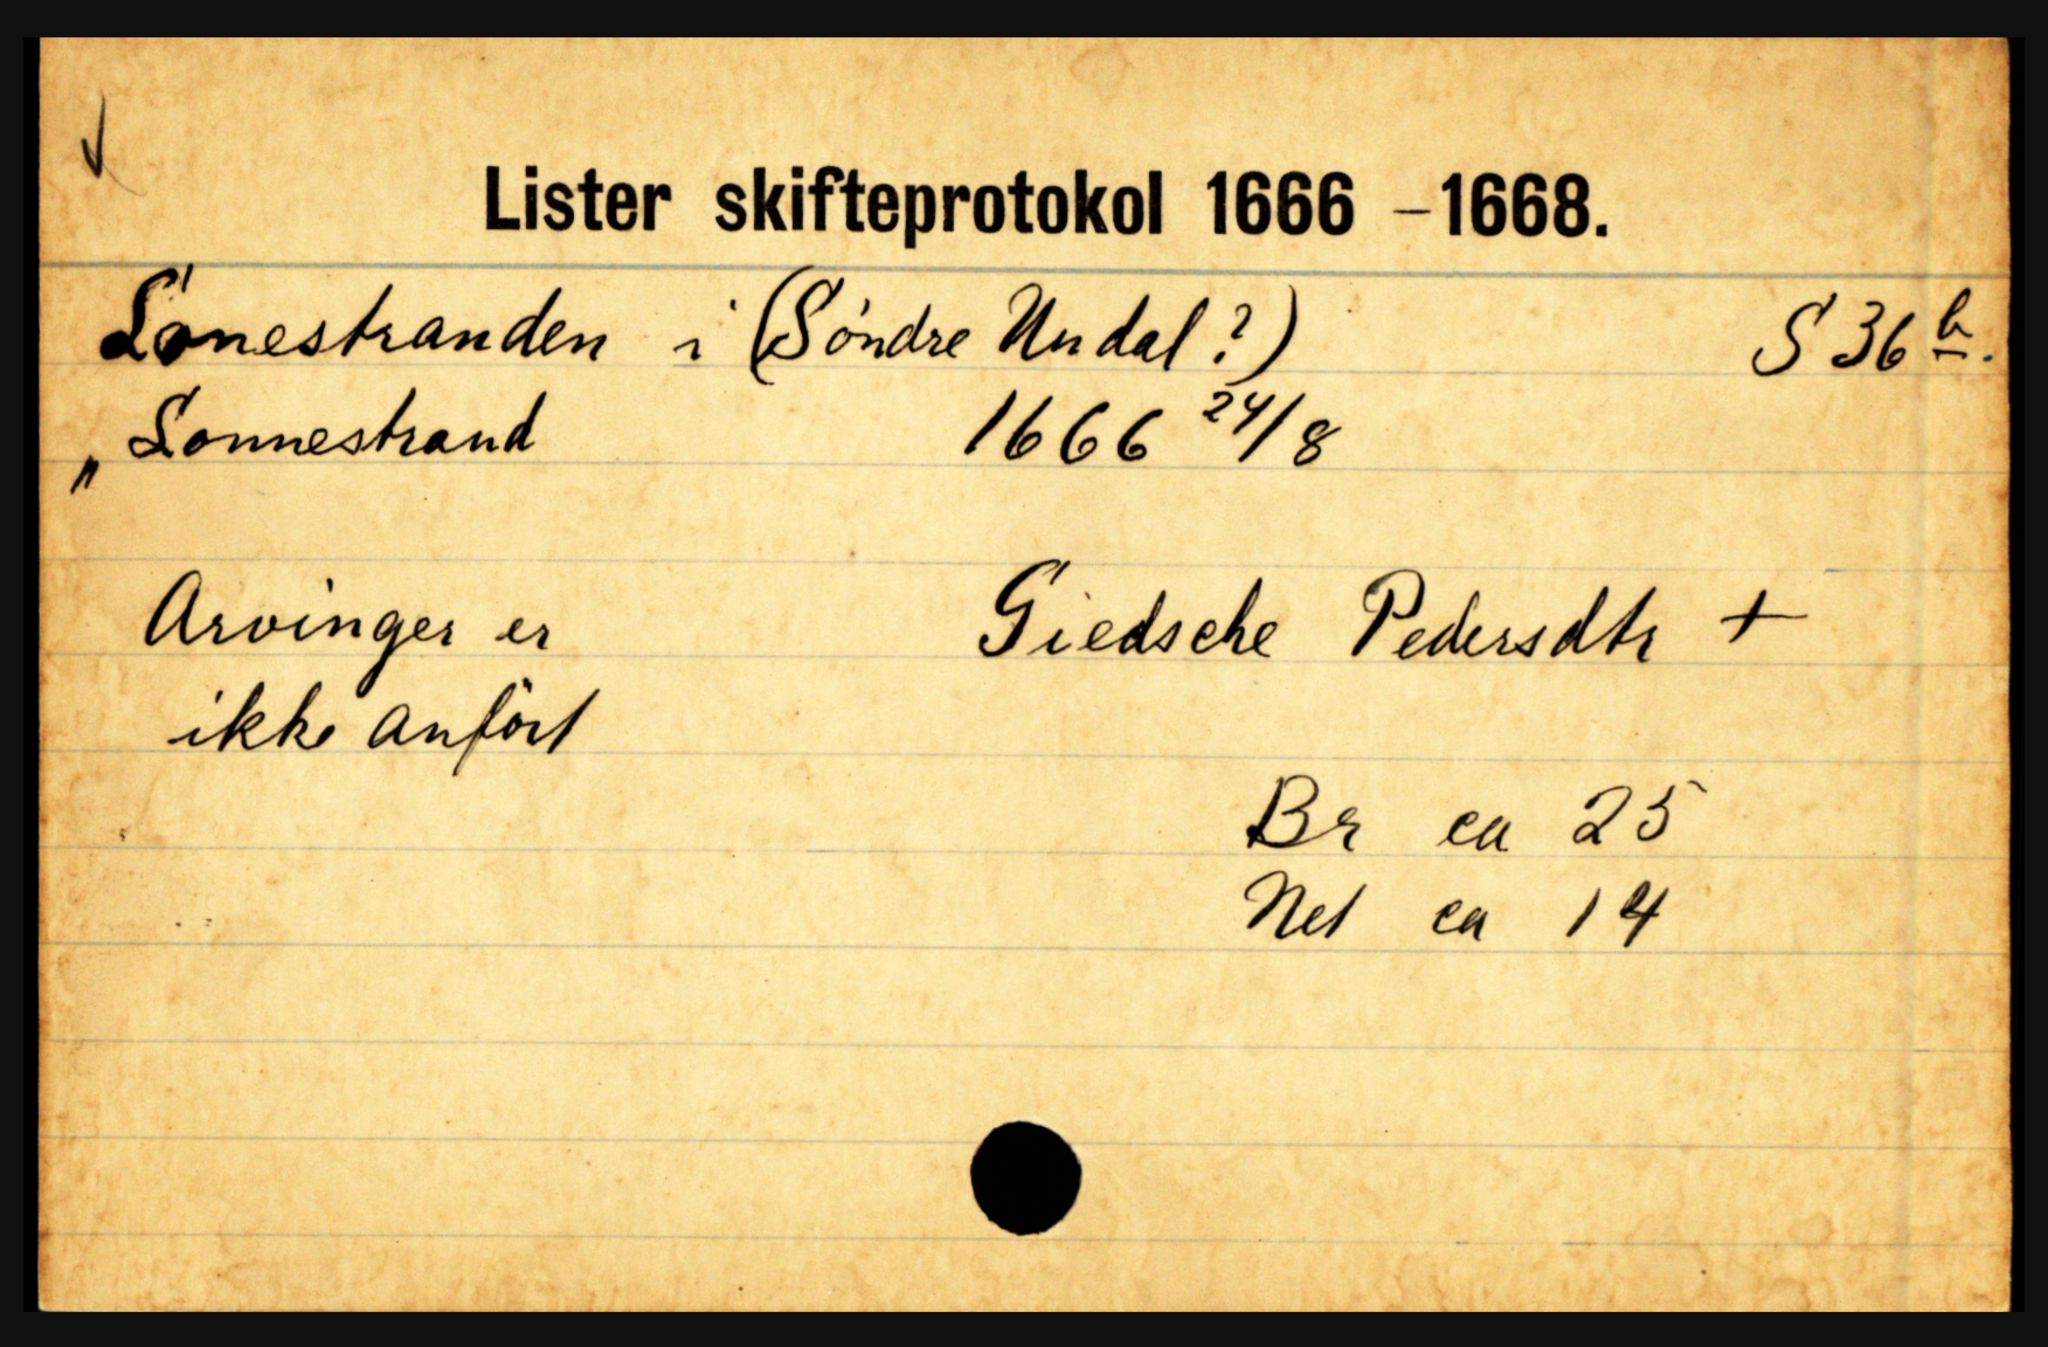 Lister skifteprotokol 1666 - 1668.
Lonestranden i (Söndre Undal?) S 36 b.
„ Lonnestrand 1666 24/8
Arvinger er Giedsche Pedersdtr +
ikke anfört
Br ca 25
Net ca 14